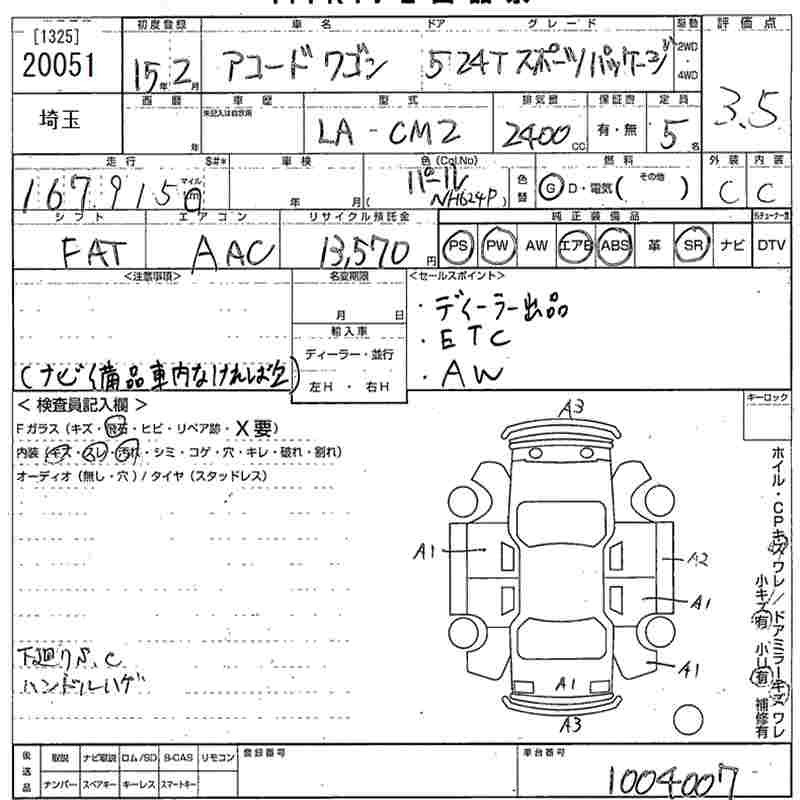 [1325]
20051
初度登録
車名
ドア
グレード
駆動
評価点
15年2月
アコードワゴン
5
24T スポーツパッケージ
2WD
・
4WD
3.5
埼玉
西暦
年
車歴
未記入は自家用
型式
排気量
保証書
定員
LA-CM2
2400cc
有・無
5名
走行
S#*
車検
色(Col.No)
燃料
外装
内装
167,915
マイル
km
年 月
パール
(NH624P)
色替
G D・電気(その他 )
C
C
シフト
エアコン
リサイクル預託金
純正装備品
FAT
AAC
13,570円
PS
PW
AW
エアB
ABS
革
SR
ナビ
DTV
<注意事項>
名変期限
<セールスポイント>
月 日
・ディーラー出品
・ETC
・AW
輸入車
ディーラー・並行
左H ・ 右H
(ナビ備品車内なければ欠)
< 検査員記入欄 >
キーロック
Fガラス(キズ・飛石・ヒビ・リペア跡・X要)
内装(キズ・スレ・汚れ・シミ・コゲ・穴・キレ・破れ・割れ)
オーディオ(無し・穴)/タイヤ(スタッドレス)
A3
A1
A2
A1
A1
A1
A3
ホイル・CPキズワレ/ドアミラーキズワレ
小キズ有 小U有 補修有
下廻りS.C
ハンドルハゲ
後送品
取説
ナビ取説
ロム/SD
B-CAS
リモコン
登録番号
車台番号
ナンバー
スペアキー
キーレス
スマートキー
1004007